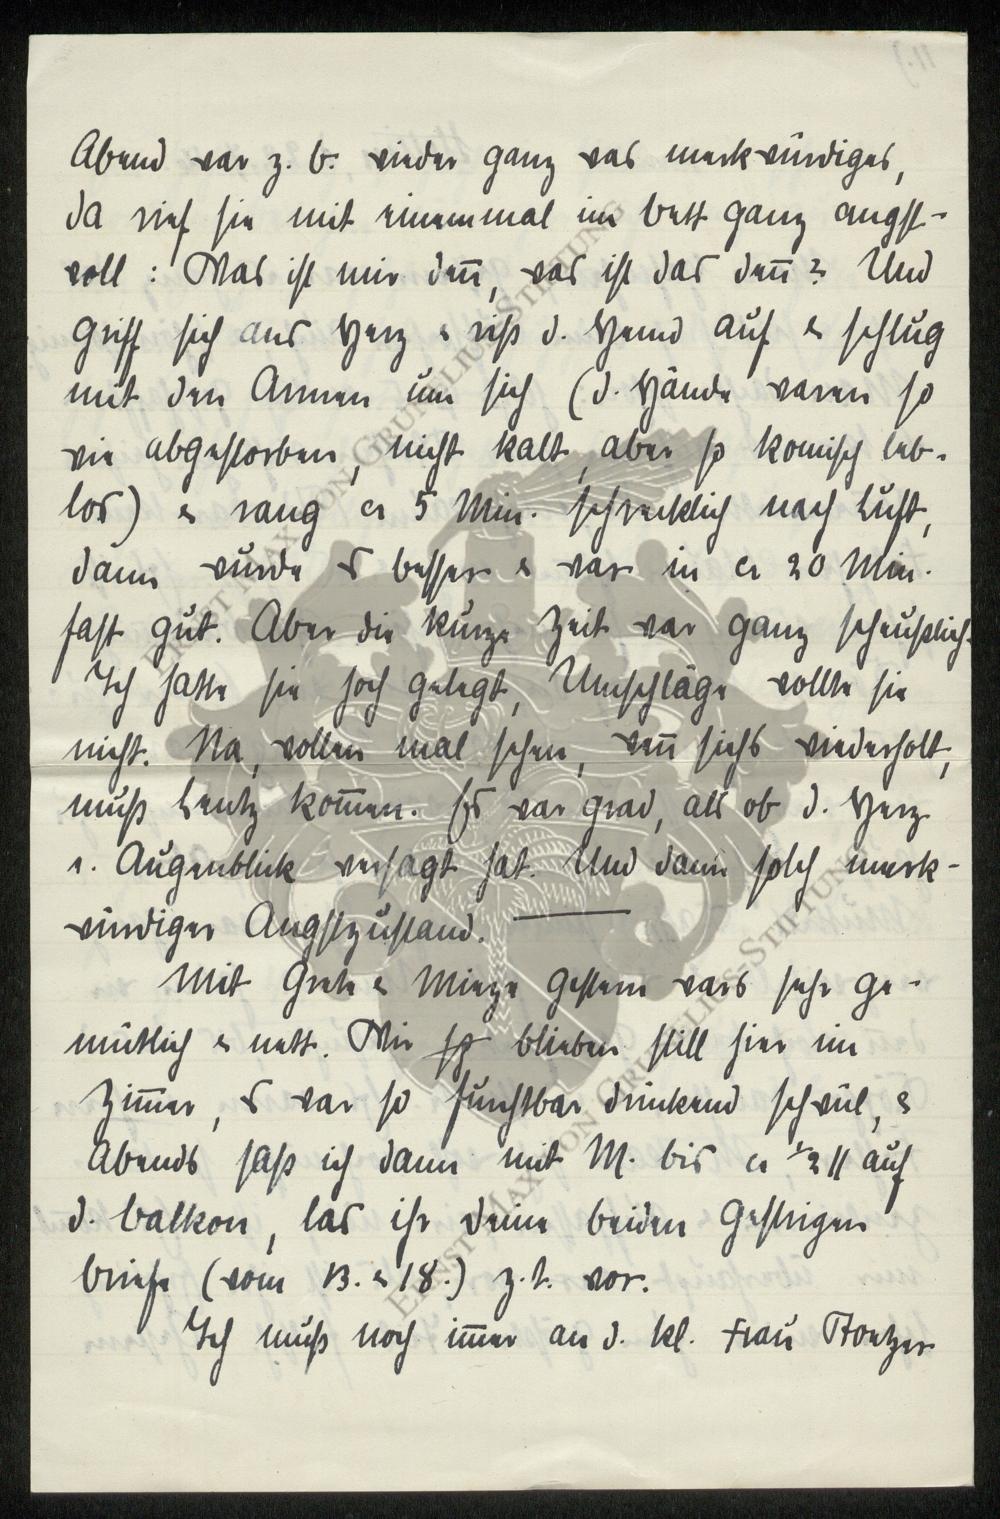 Abend war z. b. wieder ganz was merkwürdiges,
da rief sie mit einemmal im bett ganz angst-
voll : Was ist mir den̅, was ist das den̅? Und
griff sich ans Herz & riß d. Hemd auf & schlug
mit den Armen um sich (d. Hände waren so
wie abgestorben, nicht kalt, aber so komisch leb-
los) & rang ca 5 Min. schrecklich nach Luft,
dann wurde es besser & war in ca 20 Min.
fast gut. Aber die kurze Zeit war ganz scheußlich.
Ich hatte sie hoch gelegt, Umschläge wollte sie
nicht. Na, wollen mal sehen, wen̅ sichs wiederholt,
muß Lentz kom̅en. Es war grad, als ob d. Herz
e. Augenblick versagt hat. Und dann solch merk-
würdiger Angstzustand.
Mit Grete & Mieze gestern wars sehr ge-
mütlich & nett. Wir blieben still hier im
Zim̅er, es war so furchtbar drückend schwül, &
Abends saß ich dann mit M. bis ca ½ 11 auf
d. balkon, las ihr deine beiden gestrigen
briefe (vom 13. & 18.) z.t. vor.
Ich muß noch im̅er an d. kl. Frau
ERNST MAX VON GRUNELIUS-STIFTUNG
ERNST MAX VON GRUNELIUS-STIFTUNG